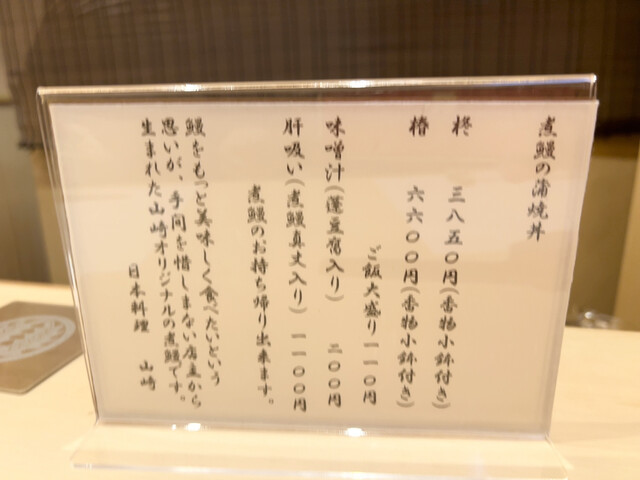 煮鰻の蒲焼丼
柊 三八五〇円(香物小鉢付き)
椿 六六〇〇円(香物小鉢付き)
ご飯大盛り一一〇円
味噌汁(蓬豆腐入り) 二〇〇円
肝吸い(煮鰻真丈入り) 一一〇〇円
煮鰻のお持ち帰り出来ます。
鰻をもっと美味しく食べたいという
思いが、手間を惜しまない店主から
生まれた山崎オリジナルの煮鰻です。
日本料理 山崎